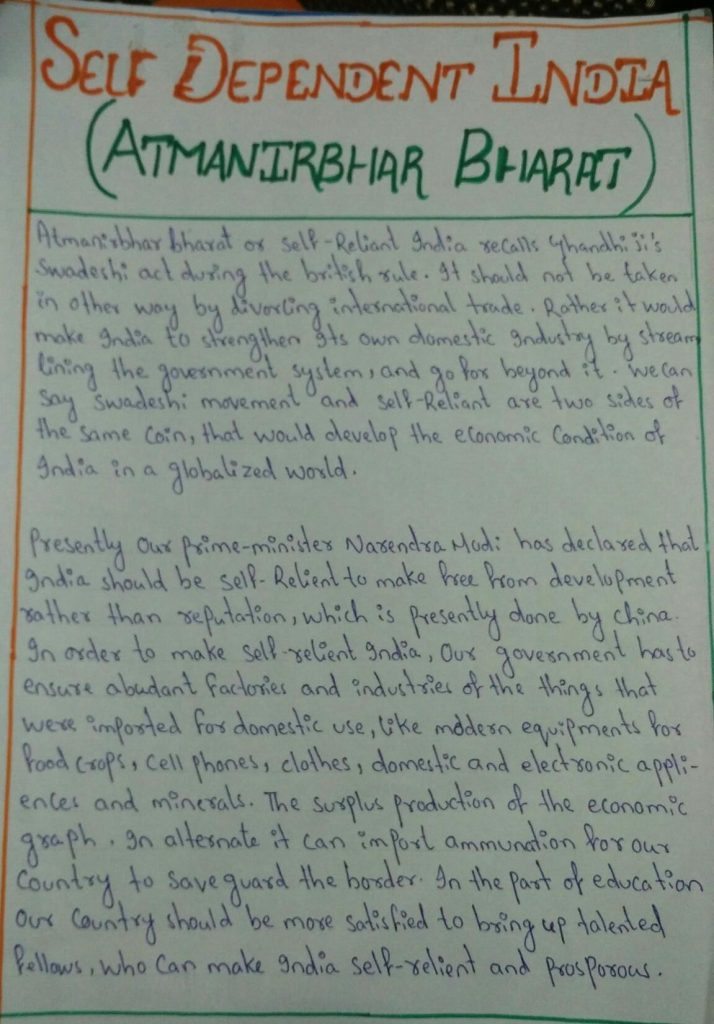 SELF DEPENDENT INDIA
(ATMANIRBHAR BHARAT)
Atmanirbhar bharat or self-Reliant India recalls Ghandhi ji's
Swadeshi act during the british rule. It should not be taken
in other way by divorcing international trade. Rather it would
make India to strengthen Its own domestic Industry by stream
lining the government system, and go for beyond it. We can
Say Swadeshi movement and self-Reliant are two sides of
the same Coin, that would develop the economic Condition of
India in a globalized world.
Presently Our prime-minister Narendra Modi has declared that
India should be self-Relient to make free from development
rather than reputation, which is presently done by china.
In order to make self-relient India, Our government has to
ensure abudant factories and industries of the things that
were imported for domestic use, like modern equipments for
food crops, Cell phones, clothes, domestic and electronic appli-
ences and minerals. The surplus production of the economic
graph. In alternate it can import ammunation for our
Country to save guard the border. In the part of education
Our Country should be more satisfied to bring up talented
fellows, who Can make India self-relient and prosporous.